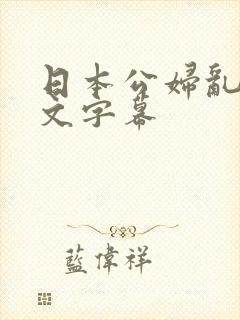 日本公婦亂
文字幕
藍偉祥